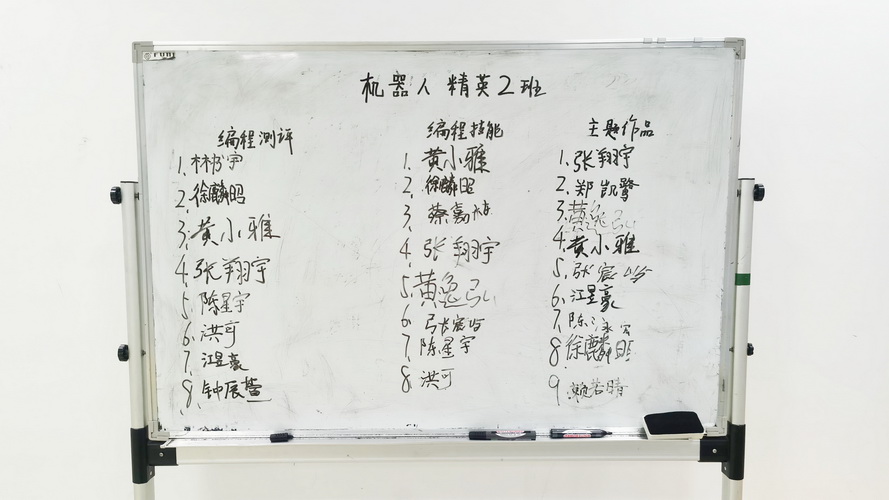 机器人 精英2班
编程测评
1. 林
2. 徐麟昭
3. 黄小雅
4. 张翔宇
5. 陈星宇
6. 洪可
7. 江昱豪
8. 钟辰
编程技能
1. 黄小雅
2. 徐麟昭
3. 蔡嘉
4. 张翔宇
5. 黄逸弘
6. 张宸
7. 陈星宇
8. 洪可
主题作品
1. 张翔宇
2. 郑凯擎
3. 黄逸弘
4. 黄小雅
5. 张宸
6. 江昱豪
7. 陈
8. 徐麟昭
9. 赖若晴